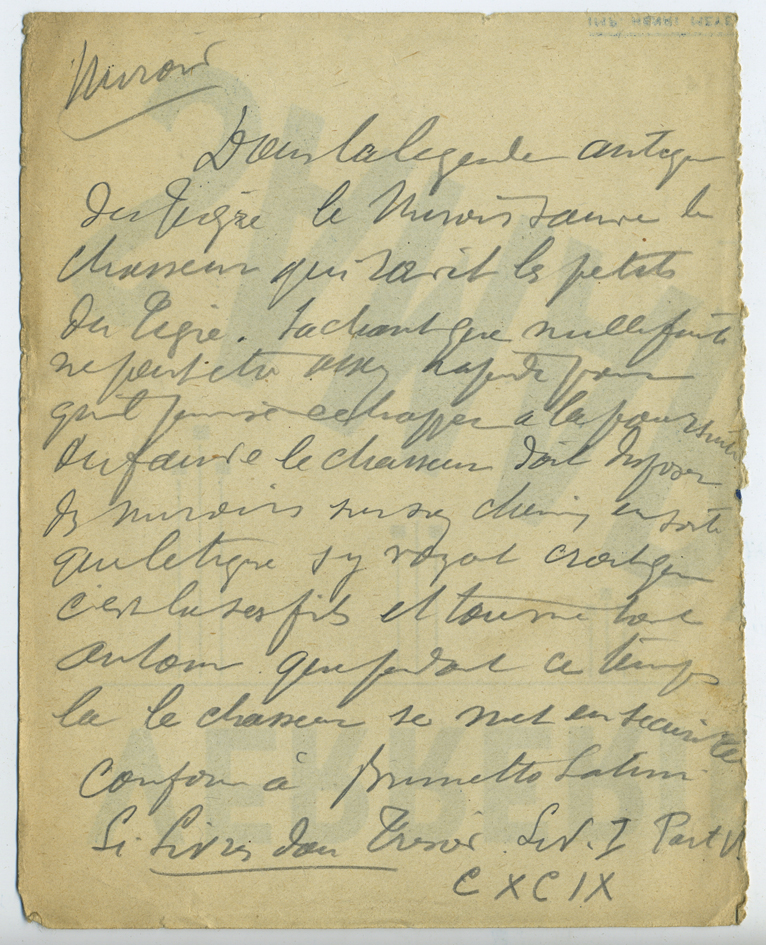 Miroir
Dans la légende antique
du Tigre le Miroir sauve le
chasseur qui ravit les petits
du Tigre. Sachant que nulle fuite
ne peut être assez rapide pour
qu'il puisse echapper a la poursuite
du fauve le chasseur doit disposer
des miroirs sur son chemin en sorte
que le tigre s'y voyant croit que
c'est la ses fils et tourne tout
autour que pendant ce temps
la le chasseur se met en securite
Conforme à Brunetto Latini
Li Livres dou Tresor Liv. I Part V
CXCIX